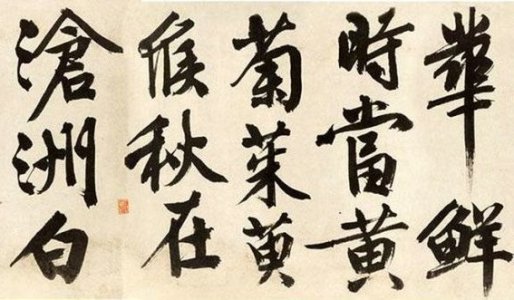 華鮮
時當黃
菊茱萸
候秋在
滄洲白